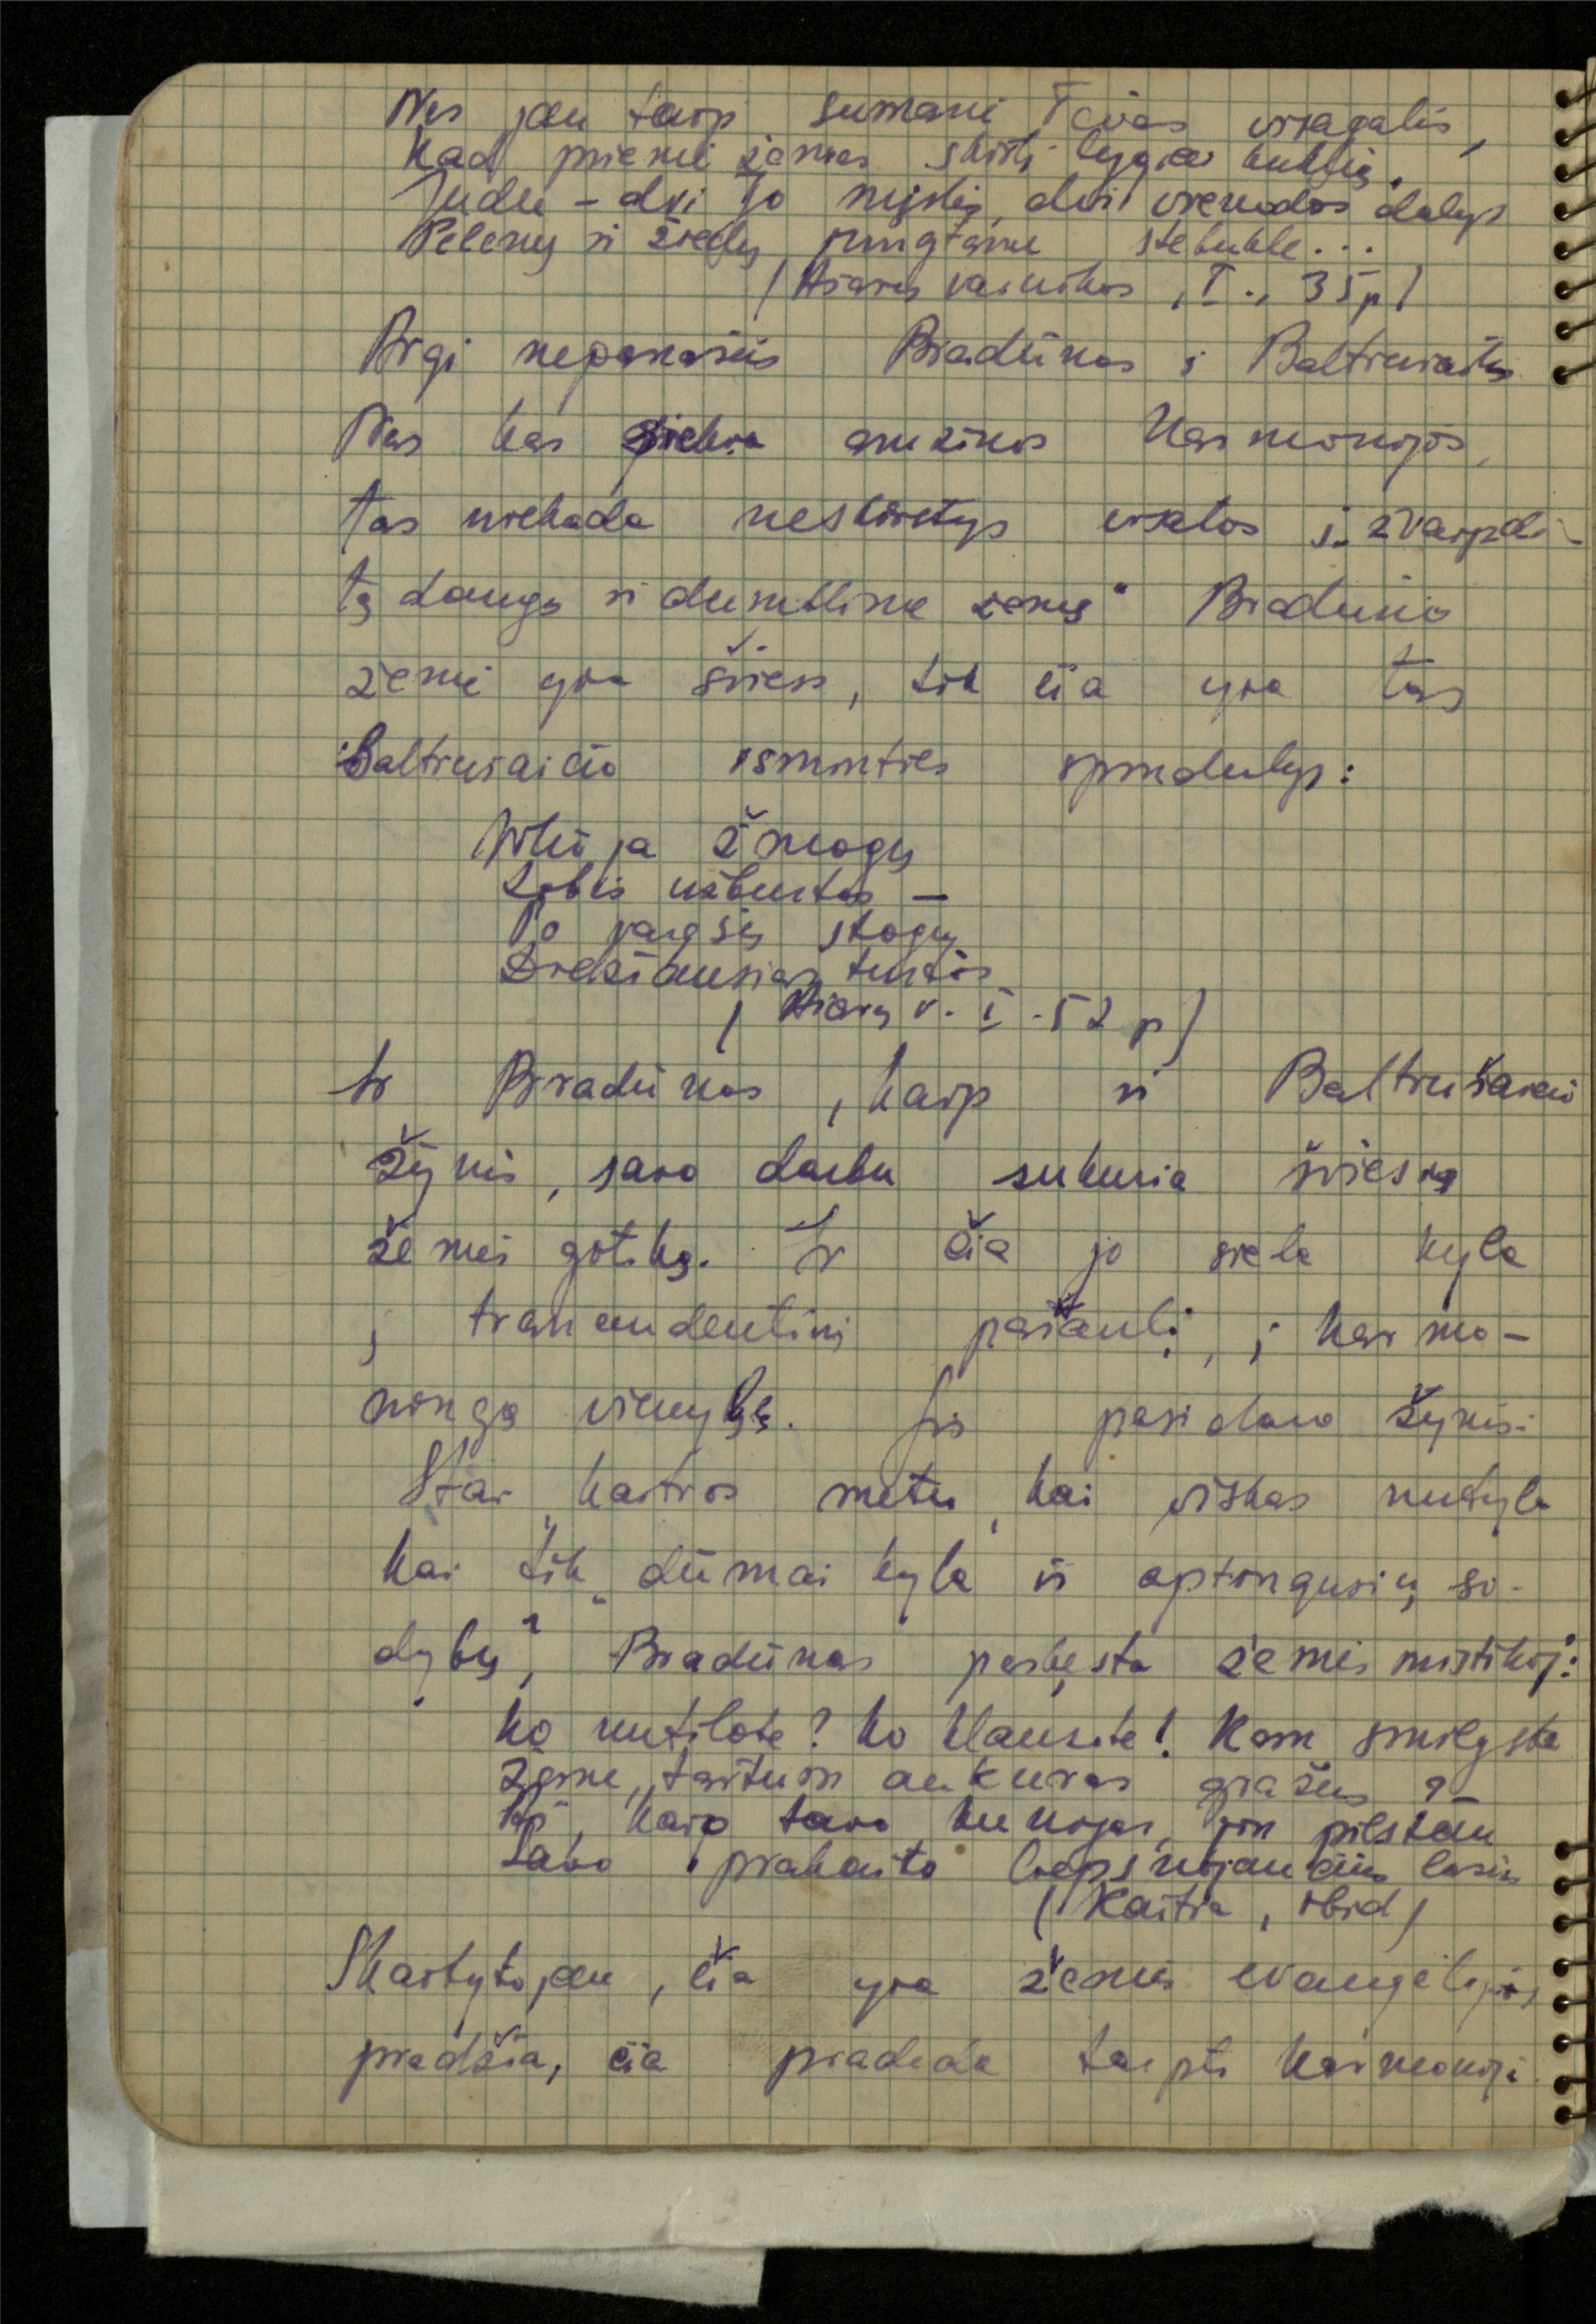 Nes jau taip sumanė Tėvas visagalis,
Kad priemė žemės skirtį lygia
Judu – dvi Jo mįslės, dvi vienodos dalys
Pelenų ir žiedų jungtame stebukle...
(Ašarų vainikas, I., 35 p)
Argi nepanašūs Bradūnas ir Baltrušaitis
Nes kas siekia amžinos harmonijos,
tas niekada neskirstys visatos į „žvaigždė-
tą dangų ir dumblinę žemę“ Bradūno
žemė yra šviesi, tik čia yra tas
Baltrušaičio išminties spindulys:
Vilioja žmogų
Lobis užburtas –
Po vargšų stogų
Didžiausias turtas
(Ašarų v. I. 52 p)
Ir Bradūnas, kaip ir Baltrušaičio
žynis, savo darbu sukuria šviesią
žemės gotiką. Ir čia jo siela kyla
į transcendentinį pasaulį, į harmo-
ningą vienybę. Jis pasidaro žynis:
Štai kaitros metu, kai viskas nutyla
kai tik „dūmai kyla iš aptingusių so-
dybų“, Bradūnas paskęsta žemės mistikoj:
Ko nutilote? Ko klausote! Kam smilgste
Žeme, tartum aukuras gražus?–
Aš, kaip tavo kunigas, jon pilstau
Savo prakaito liepsnojančius lašus
(Kaitra, ibid)
Skaitytojau, čia yra žemės evangelijos
pradžia, čia pradeda tarpti harmonija.